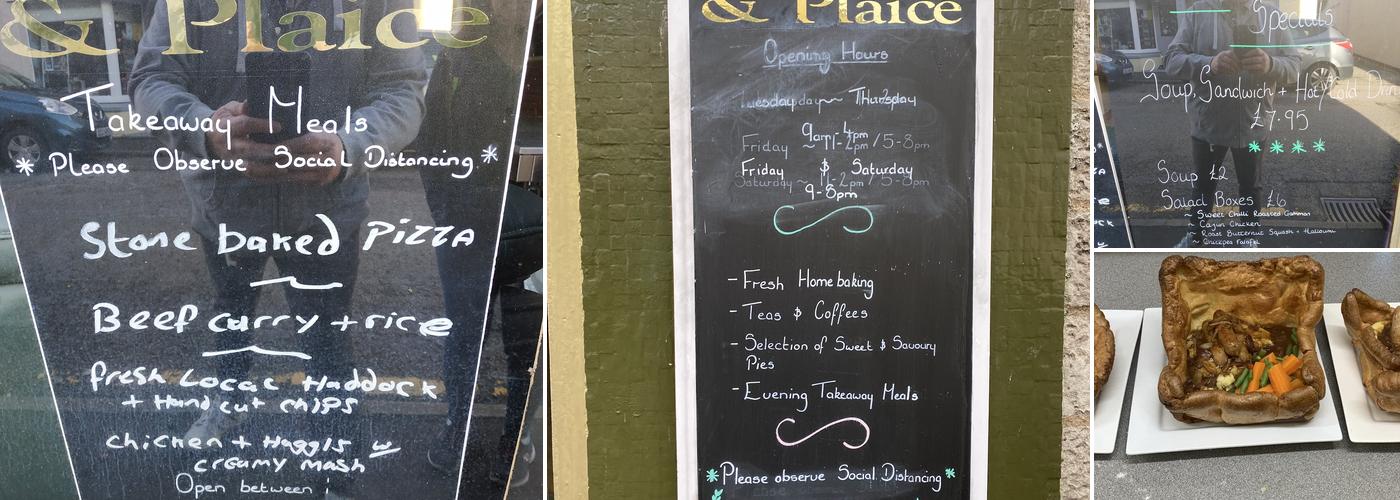 & Plaice
Takeaway Meals
* Please Observe Social Distancing *
Stone baked PIZZA
Beef curry + rice
fresh Local Haddock
+ Hand cut chips
chicken + Haggis w
creamy mash
Open between
& Plaice
Opening Hours
Tuesday ~ Thursday
9am-4pm
Friday ~ 11-2pm / 5-8pm
Friday & Saturday
Saturday ~ 11-2pm / 5-8pm
9-8pm
- Fresh Home baking
- Teas & Coffees
- Selection of Sweet & Savoury
Pies
- Evening Takeaway Meals
* Please observe Social Distancing *
Specials
Soup, Sandwich + Hot/Cold Drin
£7.95
Soup £2
Salad Boxes £6
~ Sweet Chilli Roasted Gammon
~ Cajun Chicken
~ Roast Butternut Squash + Halloumi
~ Chickpea Falafel